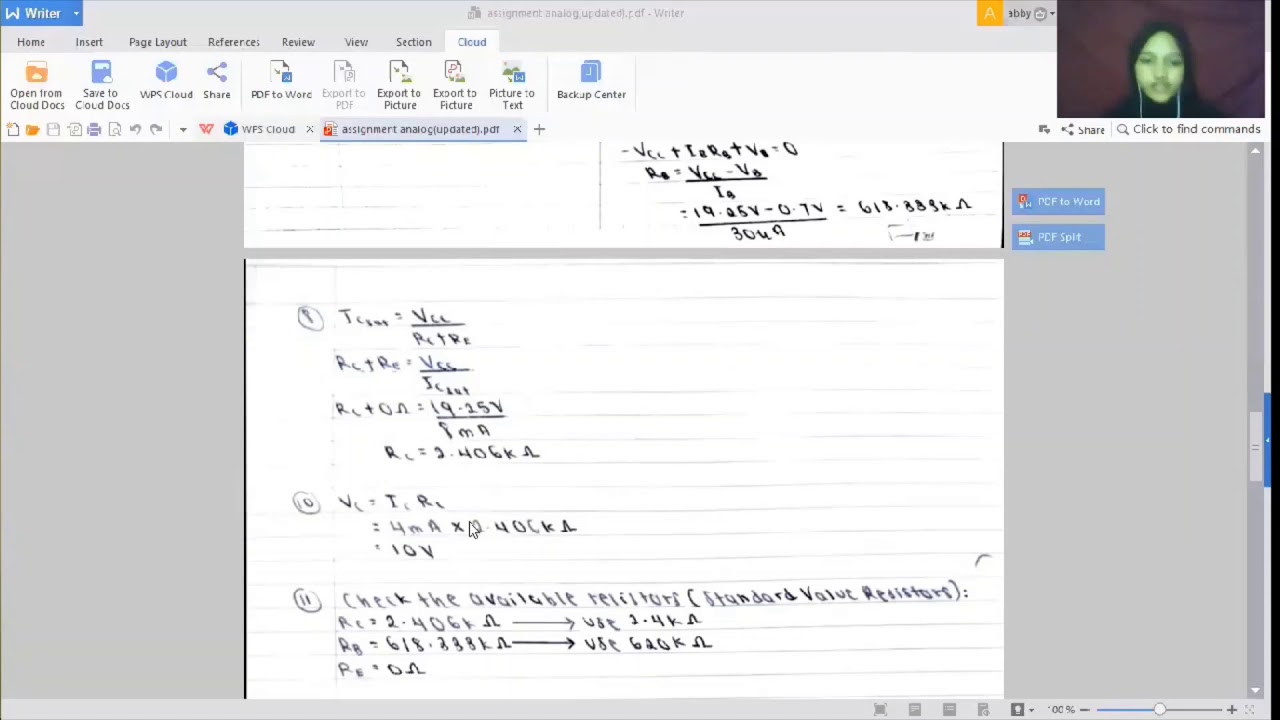 Writer
assignment analog(updated).pdf - Writer
A abby
Home Insert Page Layout References Review View Section Cloud
Open from Cloud Docs
Save to Cloud Docs
WPS Cloud
Share
PDF to Word
Export to PDF
Export to Picture
Export to Picture
Picture to Text
Backup Center
WPS Cloud × assignment analog(updated).pdf × +
Share Click to find commands
PDF to Word
PDF Split
-VCC + IBRB + VB = 0
RB = VCC - VB
IB
= 19.25V - 0.7V = 618.333kΩ
30uA
9 ICsat = VCC
RC + RE
RC + RE = VCC
ICsat
RC + 0Ω = 19.25V
8mA
RC = 2.406kΩ
10 VC = IC RC
= 4mA × 2.406kΩ
= 10V
11 Check the available resistors (Standard Value Resistors):
RC = 2.406kΩ → use 2.4kΩ
RB = 618.333kΩ → use 620kΩ
RE = 0Ω
100%